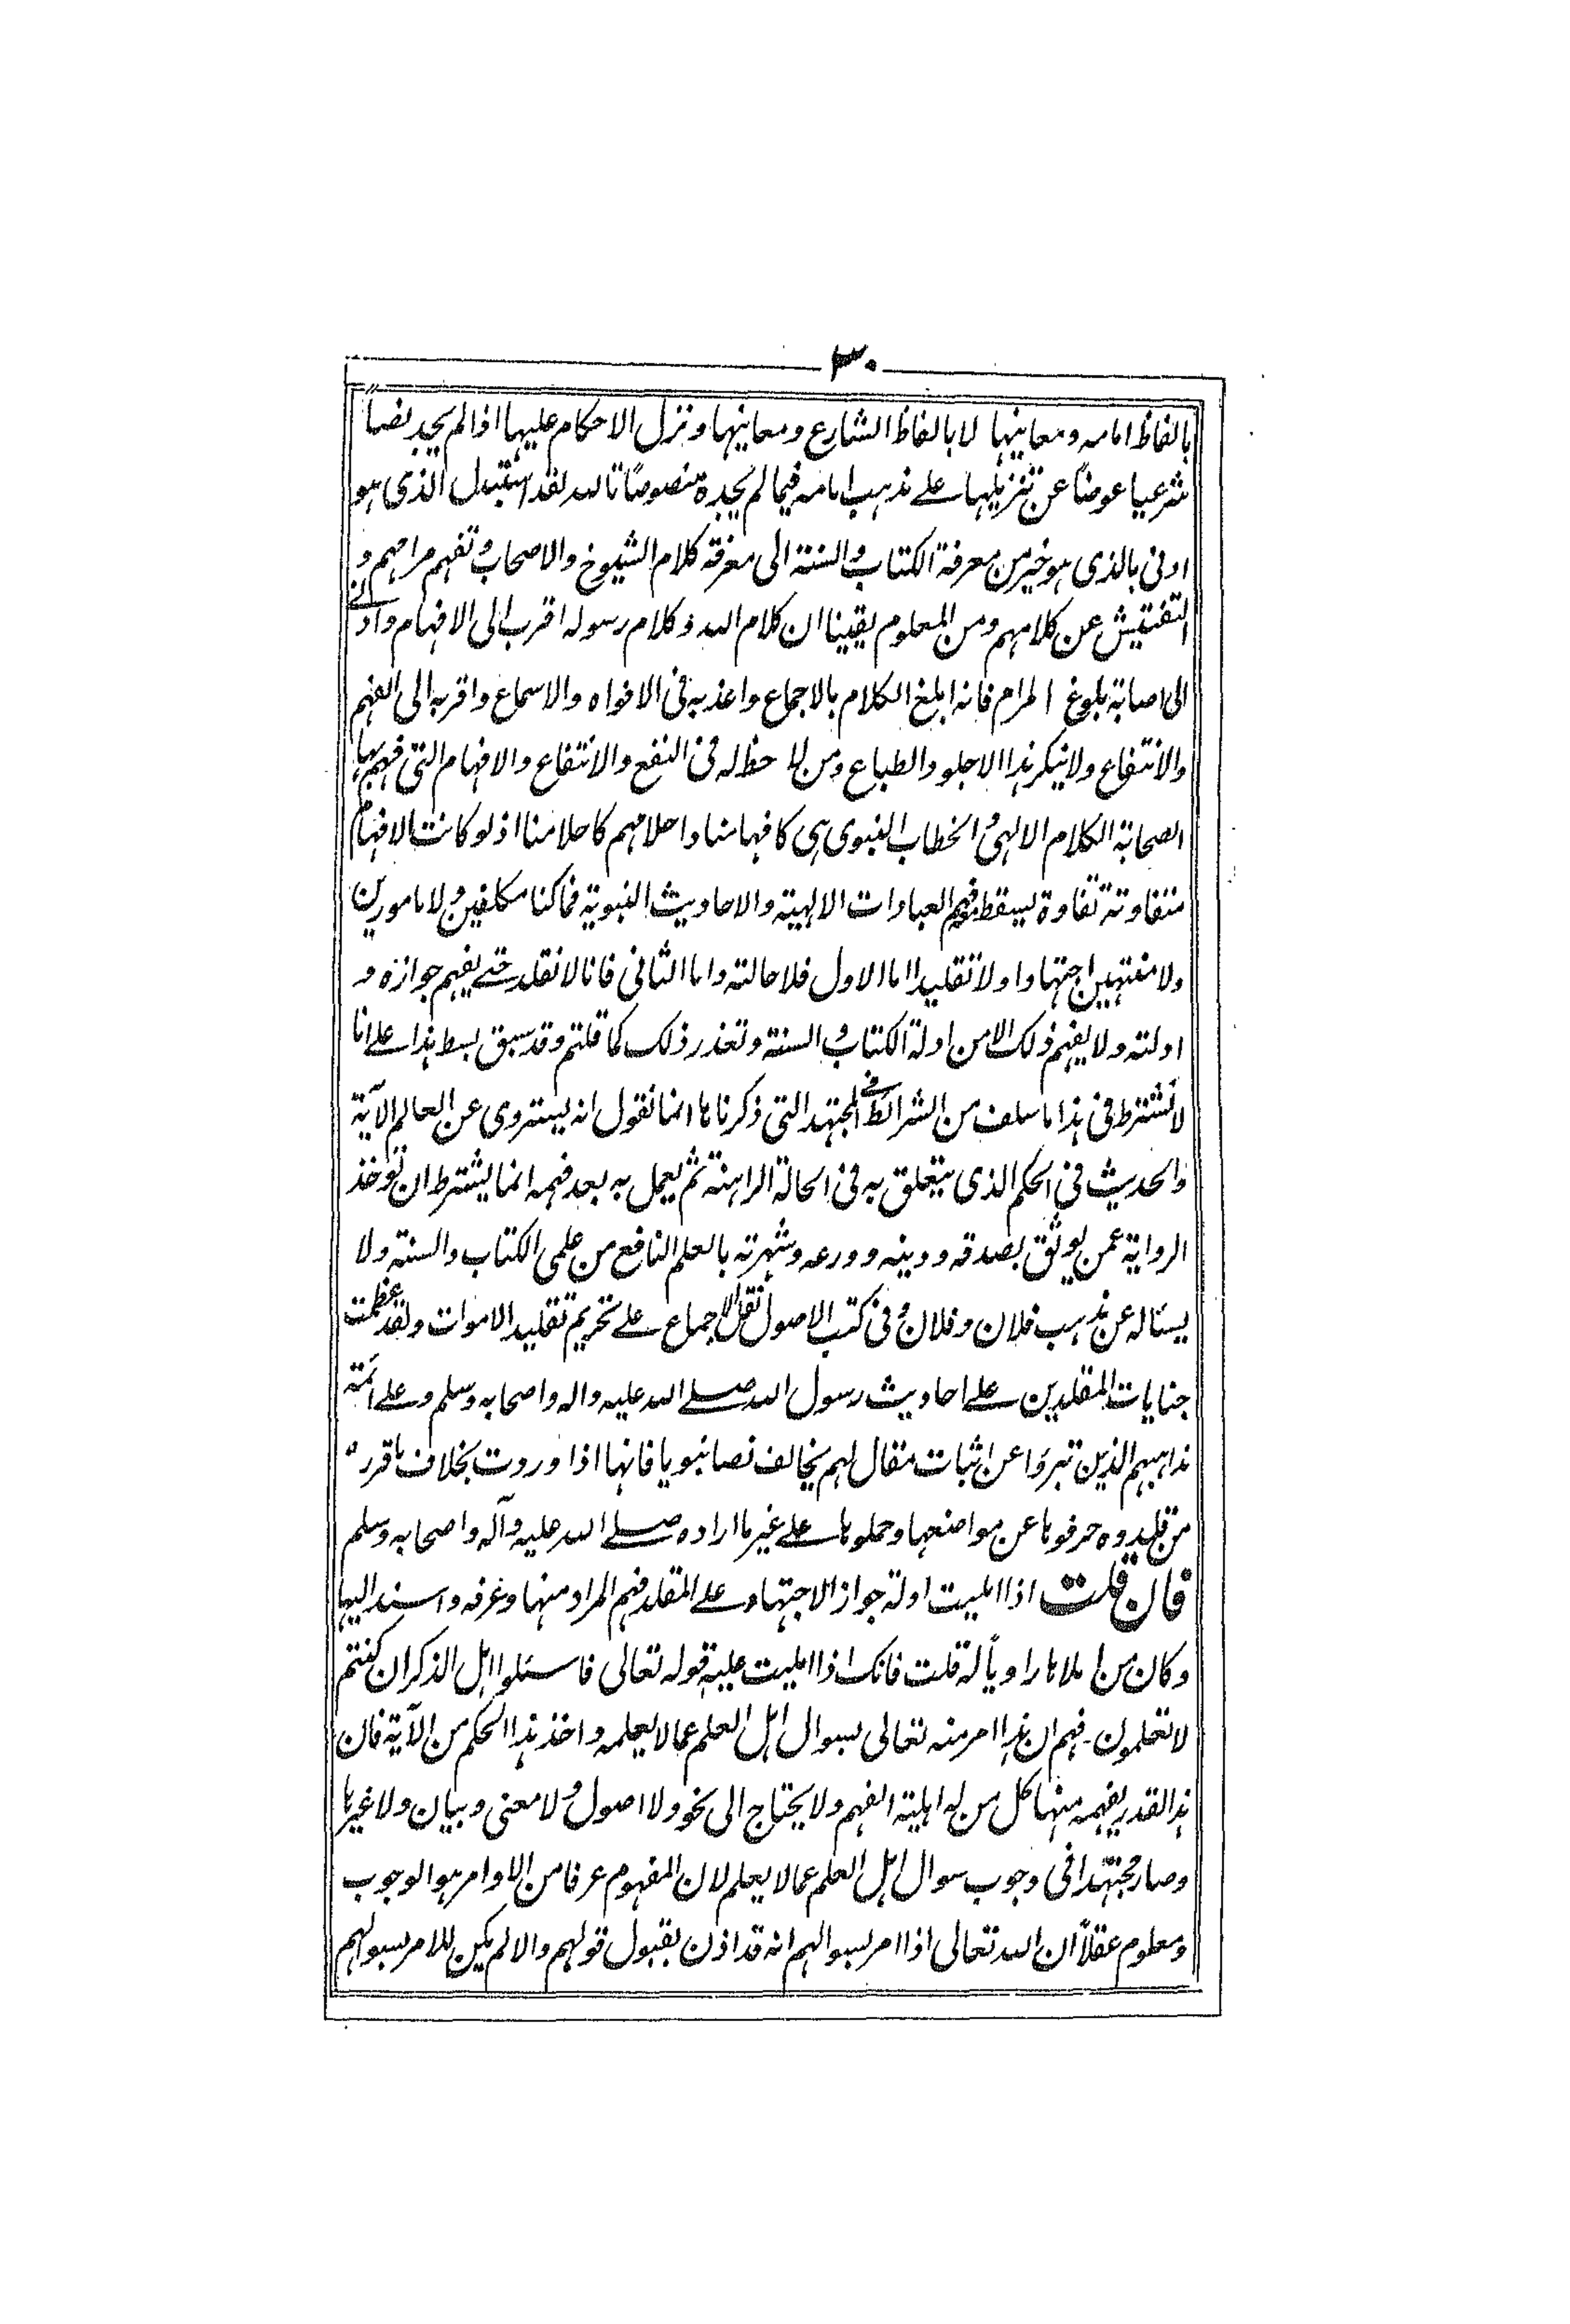 ٣٠
بالفاظ امامه ومعانيها لا بالفاظ الشارع ومعانيها وتنزل الاحكام عليها اذا لم يجد نصاً
شرعيا عوضاً عن تنزيلها على مذهب امامه فيما لم يجده منصوصًا تالله لقد استبدل الذى هو
ادنى بالذى هو خير من معرفة الكتاب والسنة الى معرفة كلام الشيوخ والاصحاب وتفهم مرامهم و
التفتيش عن كلامهم ومن المعلوم يقينا ان كلام الله وكلام رسوله اقرب الى الافهام وادنى
الى اصابة بلوغ المرام فانه ابلغ الكلام بالاجماع واعذبه فى الافواه والاسماع واقربه الى الفهم
والانتفاع ولا ينكر هذا الا جلمود الطباع ومن لا حظ له فى النفع والانتفاع والافهام التى فهم بها
الصحابة الكلام الالهى والخطاب النبوى هى كافهامنا واحلامهم كاحلامنا اذ لو كانت الافهام
متفاوتة تفاوتا يسقط معه فهم العبارات الالهية والاحاديث النبوية فما كنا مكلفين ولا مامورين
ولا منتهين اجتهادا ولا تقليدا اما الاول فلاحالته واما الثانى فانا لا نقلد حتى يفهم جوازه و
ادلته ولا يفهم ذلك الا من ادلة الكتاب والسنة وتعذر ذلك كما قلتم وقد سبق بسط هذا على انا
لا نشترط فى هذا ما سلف من الشرائط فى المجتهد التى ذكرناها انما نقول انه يستروى عن العالم الآية
والحديث فى الحكم الذى يتعلق به فى الحالة الراهنة ثم يعمل به بعد فهمه انما يشترط ان تؤخذ
الرواية عمن يوثق بصدقه ودينه وورعه وشهرته بالعلم النافع من علمى الكتاب والسنة ولا
يسئاله عن مذهب فلان وفلان وفى كتب الاصول نقل الاجماع على تحريم تقليد الاموات ولقد عظمت
جنايات المقلدين على احاديث رسول الله صلى الله عليه واله واصحابه وسلم وعلى ائمة
مذاهبهم الذين تبرؤا عن اثبات مقال لهم يخالف نصا نبويا فانها اذا وردت بخلاف ما قرره
من قلدوه حرفوها عن مواضعها وحملوها على غير ما اراده صلى الله عليه وآله واصحابه وسلم
فان قلت اذا امليت ادلة جواز الاجتهاد على المقلد فهم المراد منها وعرفه واسند اليها
وكان من املاها راوياً له قلت فانك اذا امليت عليه قوله تعالى فاسئلوا اهل الذكر ان كنتم
لا تعلمون۔ فهم ان هذا امر منه تعالى بسوال اهل العلم عما لا يعلمه واخذ هذا الحكم من الآية فان
هذا القدر يفهمه منها كل من له اهلية الفهم ولا يحتاج الى نحو ولا اصول ولا معنى وبيان ولا غيرها
وصار مجتهدا فى وجوب سوال اهل العلم عما لا يعلم لان المفهوم عرفا من الاوامر هو الوجوب
ومعلوم عقلاً ان الله تعالى اذا امر بسوالهم انه قد اذن بقبول قولهم والا لم يكن للامر بسوالهم